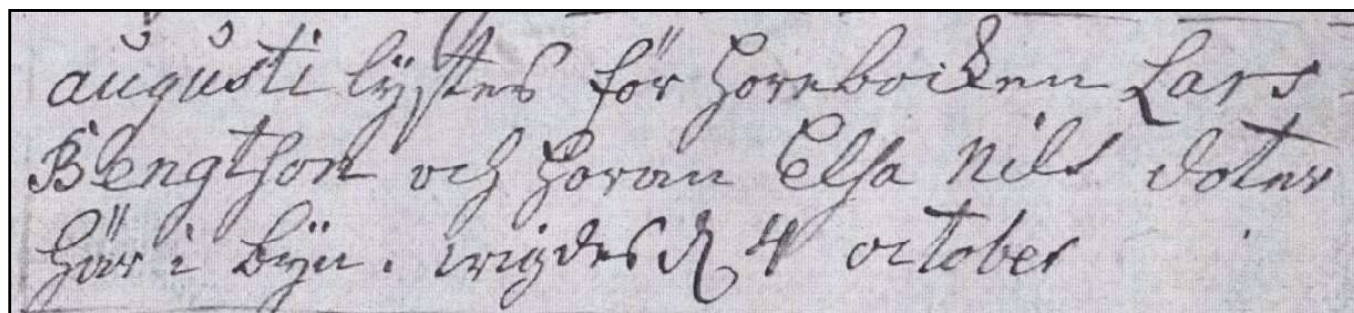 augusti lÿstes för horebocken Lars
Bengtson och horan Elsa Nils doter
här i bÿn. wigdes d 4 october